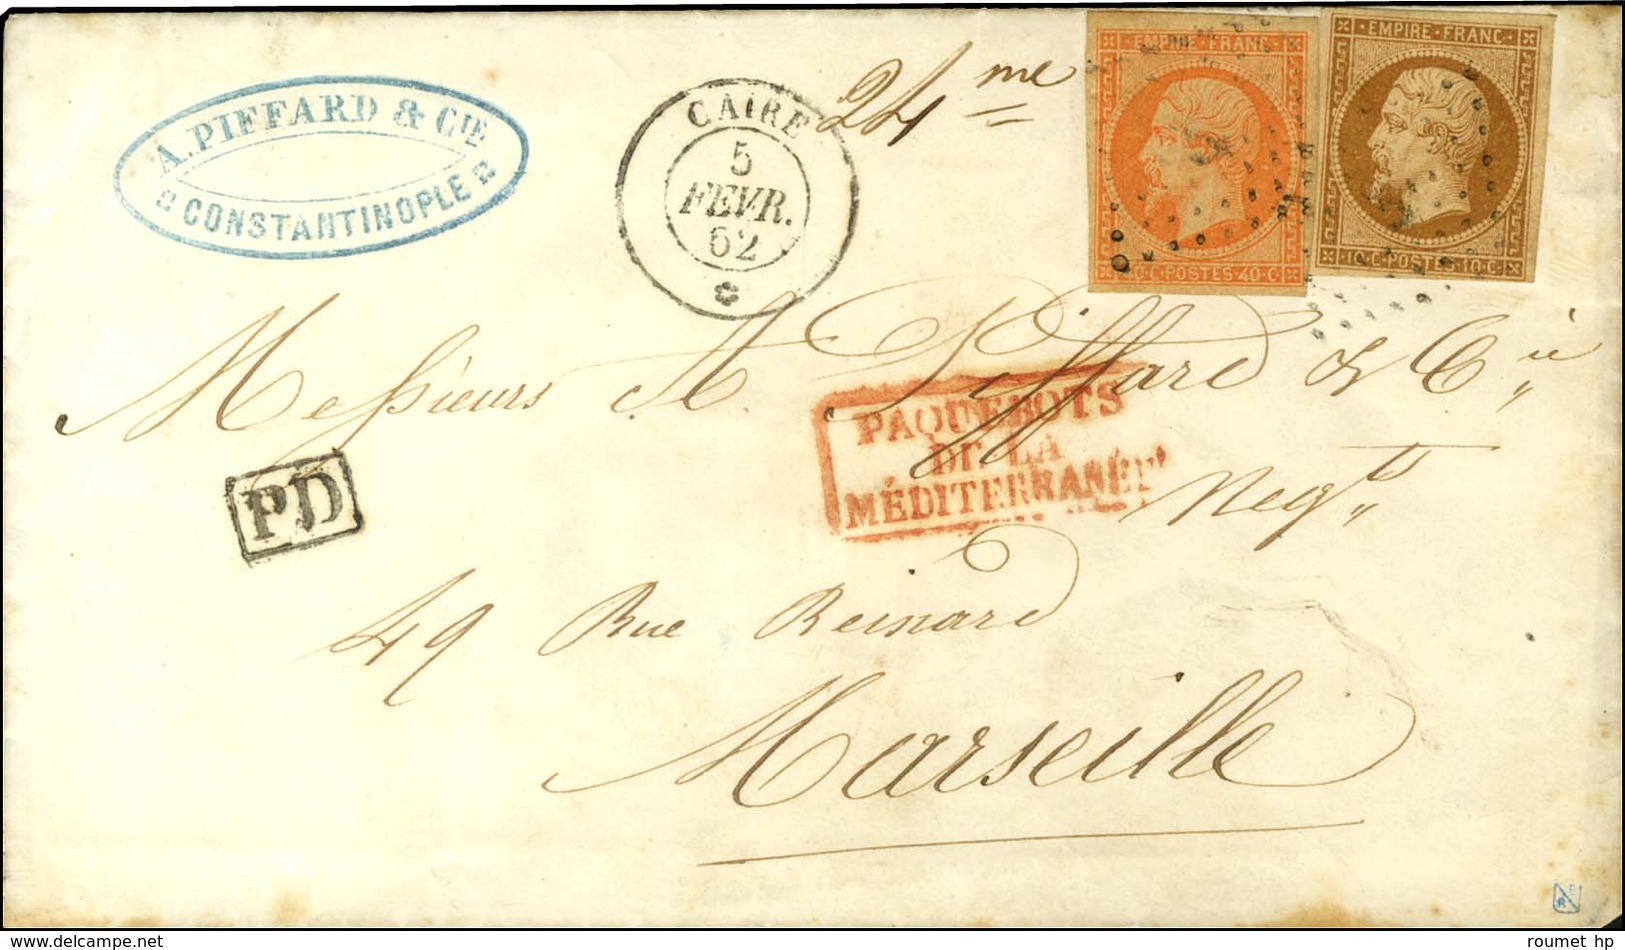 A. PIFFARD & CIE
CONSTANTINOPLE
CAIRE
5
FEVR.
62
24 me
EMPIRE · FRANC ·
40·C·POSTES·40·C
EMPIRE · FRANC ·
10·C·POSTES·10·C
Messieurs A. Piffard & Cie
PAQUEBOTS
DE LA
MÉDITERRANÉE
Negts
PD
49 Rue Reinard
Marseille
roumet hp